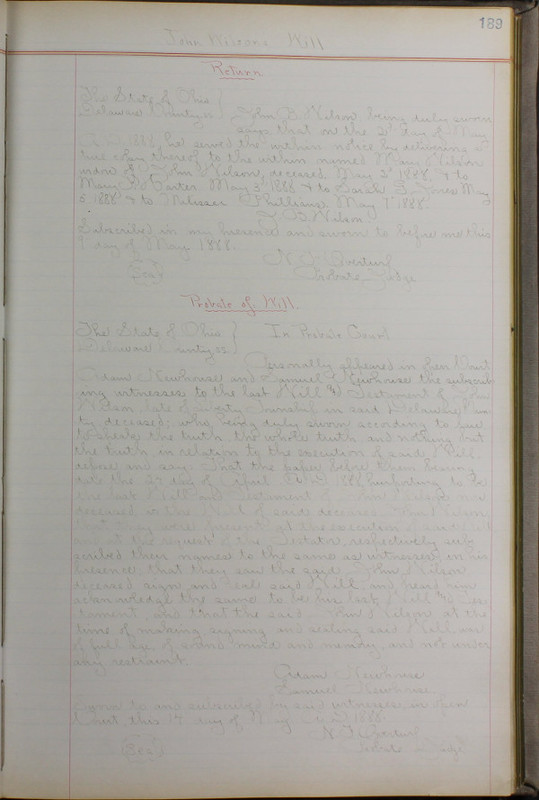 189
John Wilsons Will
Return
The State of Ohio
Delaware County ss John B Wilson being duly sworn
says that on the 2d day of May
A.D. 1888 he served the within notice by delivering a
true copy thereof to the within named Mary Wilson
widow of John Wilson, deceased, May 3d 1888 & to
Mary Carter May 3d 1888 & to Sarah Jones May
5 1888 & to Melissa Phillians May 7 1888
J. B. Wilson
Subscribed in my presence and sworn to before me this
day of May 1888.
N. F. Overturf
Seal Probate Judge
Probate of Will.
The State of Ohio In Probate Court
Delaware County ss.
Personally appeared in open Court
Adam Newhouse and Samuel Newhouse the subscrib
ing witnesses to the last Will and Testament of John
Wilson late of Township in said Delaware Coun
ty, deceased, who being duly sworn according to law
to speak the truth the whole truth and nothing but
the truth, in relation to the execution of said Will,
depose and say: That the paper before them bearing
date the 27 day of April A.D. 1888 purporting to be
the last Will and Testament of John Wilson now
deceased is the Will of said deceased John Wilson,
that they were present at the execution of said Will
and at the request of the Testator, respectively sub
scribed their names to the same as witnesses in his
presence; that they saw the said John Wilson
deceased sign and seal said Will and heard him
acknowledge the same to be his last Will and Tes-
tament, and that the said John Wilson at the
time of making signing and sealing said Will, was
of full age, of sound mind and memory, and not under
any restraint.
Adam Newhouse
Samuel Newhouse
Sworn to and subscribed by said witnesses in open
Court this 17 day of May A.D. 1888
N. F. Overturf
Seal Probate Judge